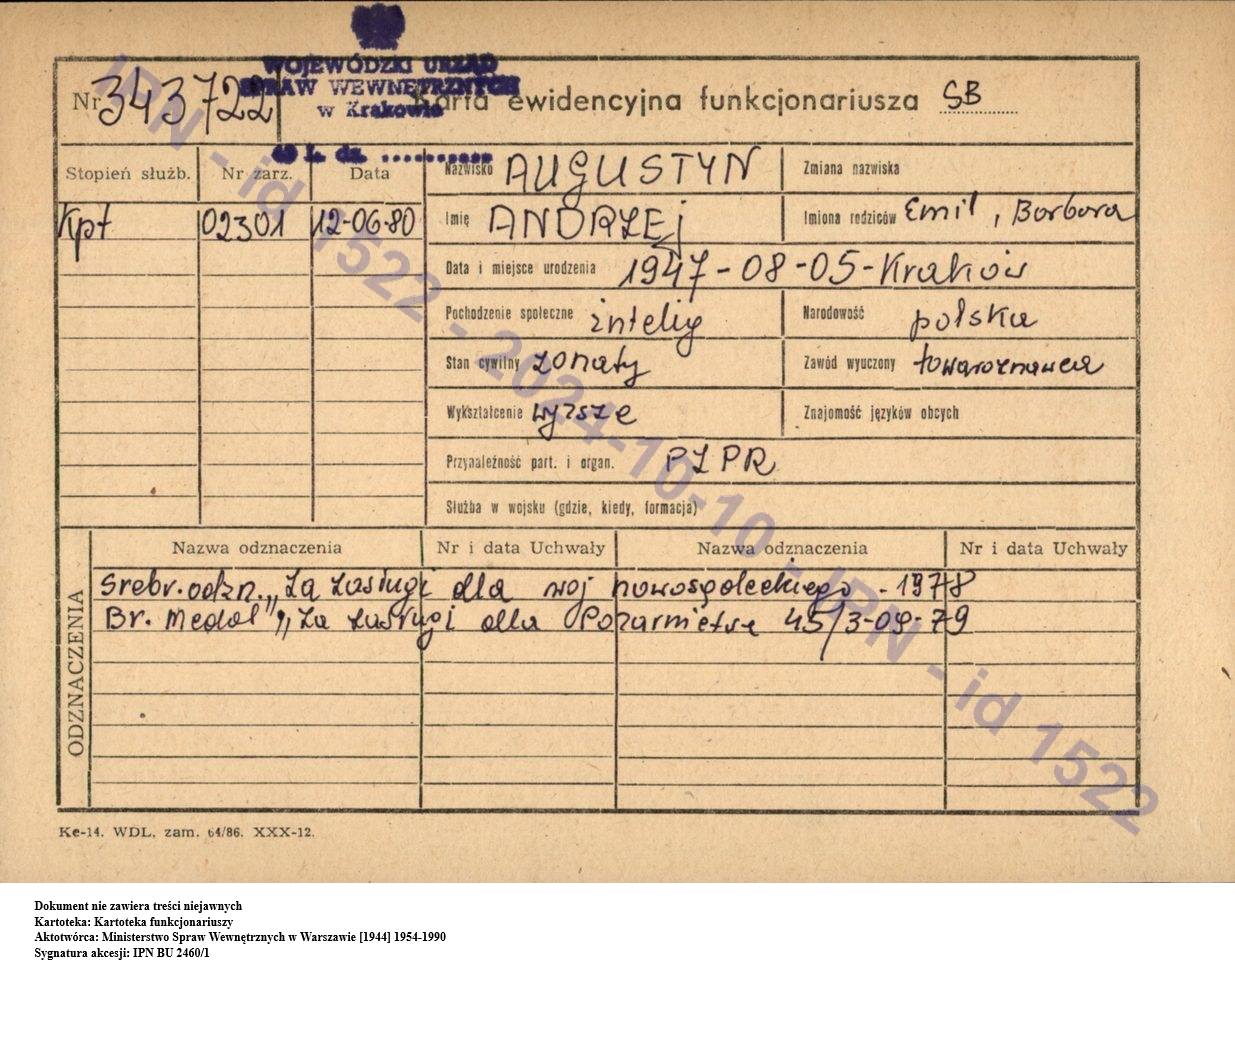 WOJEWÓDZKI URZĄD
SPRAW WEWNĘTRZNYCH
w Krakowie
Nr 343722
Karta ewidencyjna funkcjonariusza SB
Stopień służb. Nr zarz. Data
Kpt 02301 12-06-80
Nazwisko AUGUSTYN Zmiana nazwiska
Imię ANDRZEj Imiona rodziców Emil, Barbara
Data i miejsce urodzenia 1947-08-05-Kraków
Pochodzenie społeczne intelig Narodowość polska
Stan cywilny żonaty Zawód wyuczony towaroznawca
Wykształcenie wyższe Znajomość języków obcych
Przynależność part. i organ. PZPR
Służba w wojsku (gdzie, kiedy, formacja)
ODZNACZENIA
Nazwa odznaczenia Nr i data Uchwały Nazwa odznaczenia Nr i data Uchwały
Srebr. odzn. „Za zasługi dla woj nowosądeckiego - 1978
Br. Medal "„Za zasługi dla Pożarnictwa 45/3-09-79
Ke-14. WDL. zam. 64/86. XXX-12.
IPN - id 1522 - 2024-10-10 - IPN - id 1522
Dokument nie zawiera treści niejawnych
Kartoteka: Kartoteka funkcjonariuszy
Aktotwórca: Ministerstwo Spraw Wewnętrznych w Warszawie [1944] 1954-1990
Sygnatura akcesji: IPN BU 2460/1